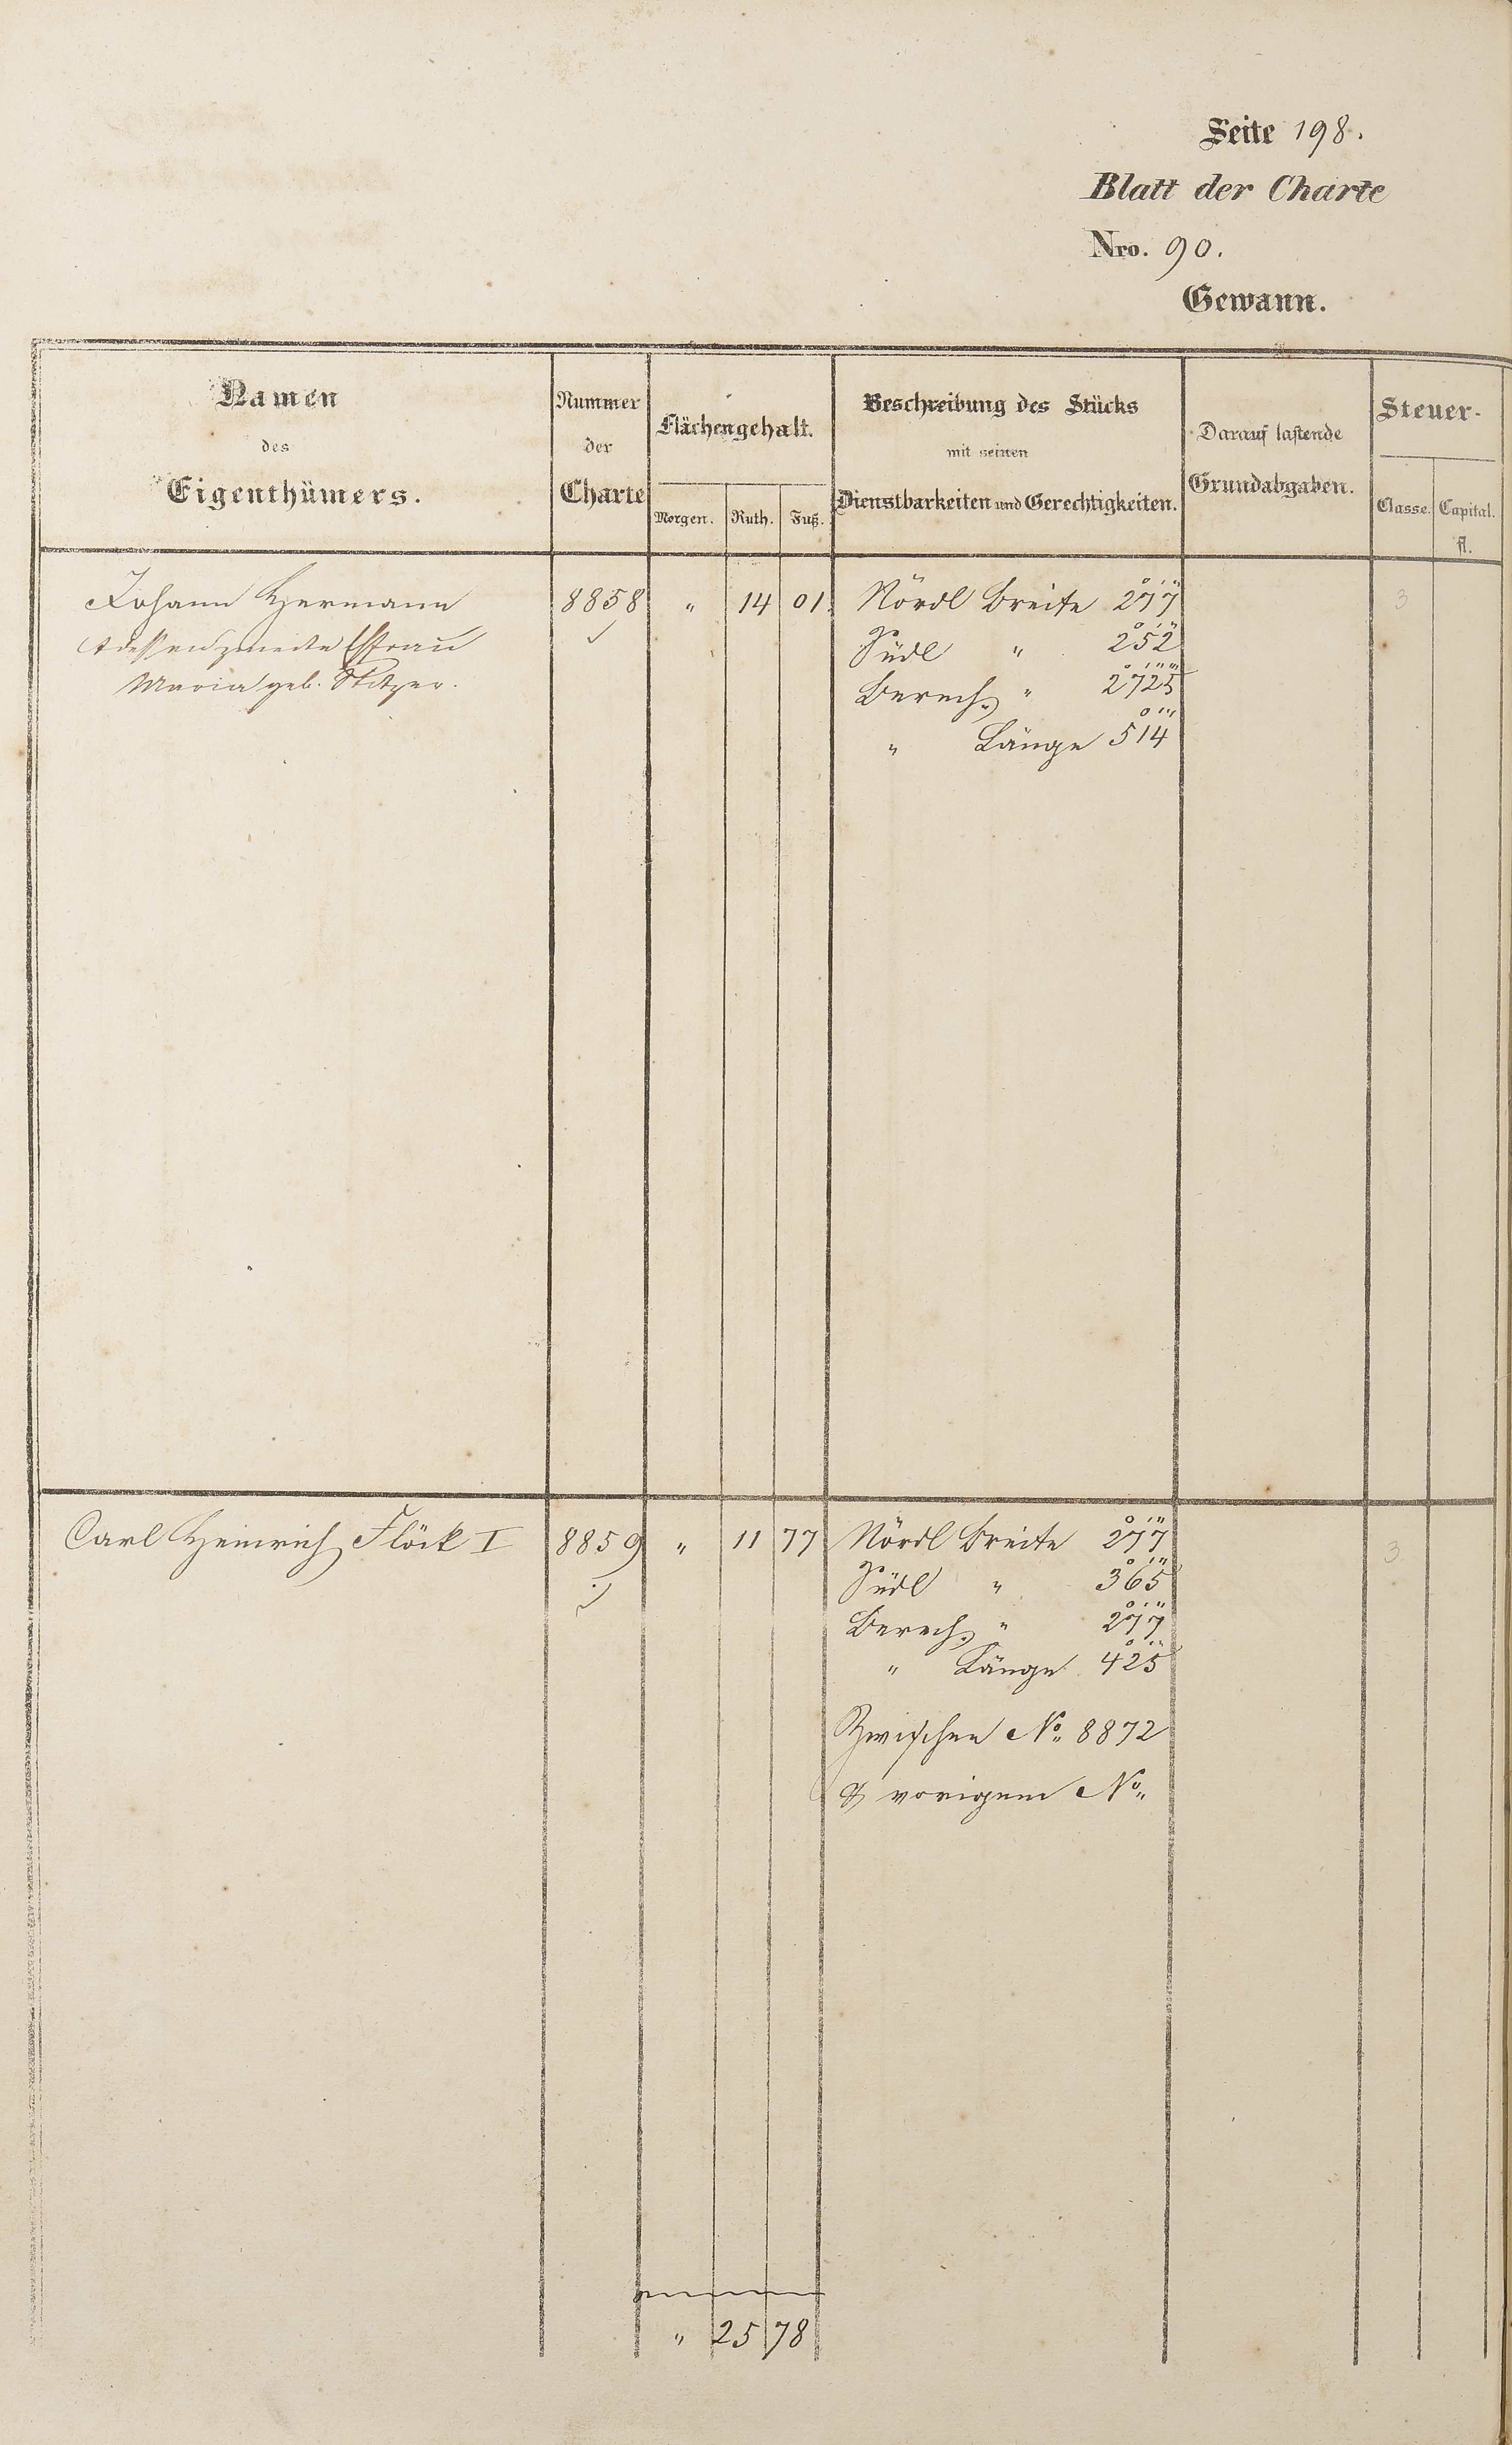 Seite 198.
Blatt der Charte
Nro. 90.
Gewann.
Namen
des
Eigenthümers.
Nummer
der
Charte
Flächengehalt.
Morgen. Ruth. Fuß.
Beschreibung des Stücks
mit seinen
Dienstbarkeiten und Gerechtigkeiten.
Darauf lastende
Grundabgaben.
Steuer-
Classe. Capital.
fl.
Johann Hermann 8858 " 14 01 Nördl Breite 2°7'7" 3
& dessen zweite Ehfrau ✓ Südl " 2°5'2"
Maria geb. Stitzer. Berech. " 2°7'2"5'''
" Länge 5°1'4"
Carl Heinrich Flöck I 8859 " 11 77 Nördl Breite 2°7'7" 3
✓ Südl " 3°6'5"
Berech. " 2°7'7"
" Länge 4°2'5"
Zwischen No. 8872
& vorigem No.
" 25 78